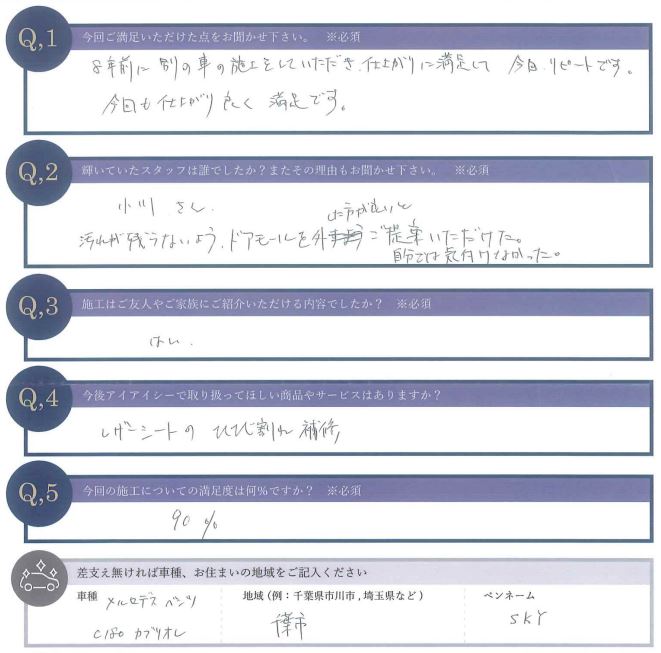 Q,1 今回ご満足いただけた点をお聞かせ下さい。 ※必須
8年前に別の車の施工をしていただき、仕上がりに満足して今日、リピートです。
今回も仕上がり良く満足です。
Q,2 輝いていたスタッフは誰でしたか?またその理由もお聞かせ下さい。 ※必須
小川さん.
した方が良いと
汚れが残らないよう、ドアモールを外 ご提案いただけた。
自分では気付けなかった。
Q,3 施工はご友人やご家族にご紹介いただける内容でしたか? ※必須
はい.
Q,4 今後アイアイシーで取り扱ってほしい商品やサービスはありますか?
レザーシートの ひび割れ 補修
Q,5 今回の施工についての満足度は何%ですか? ※必須
90 %
差支え無ければ車種、お住まいの地域をご記入ください
車種 メルセデス ベンツ
C180 カブリオレ
地域 (例:千葉県市川市,埼玉県など)
千葉市
ペンネーム
SKY